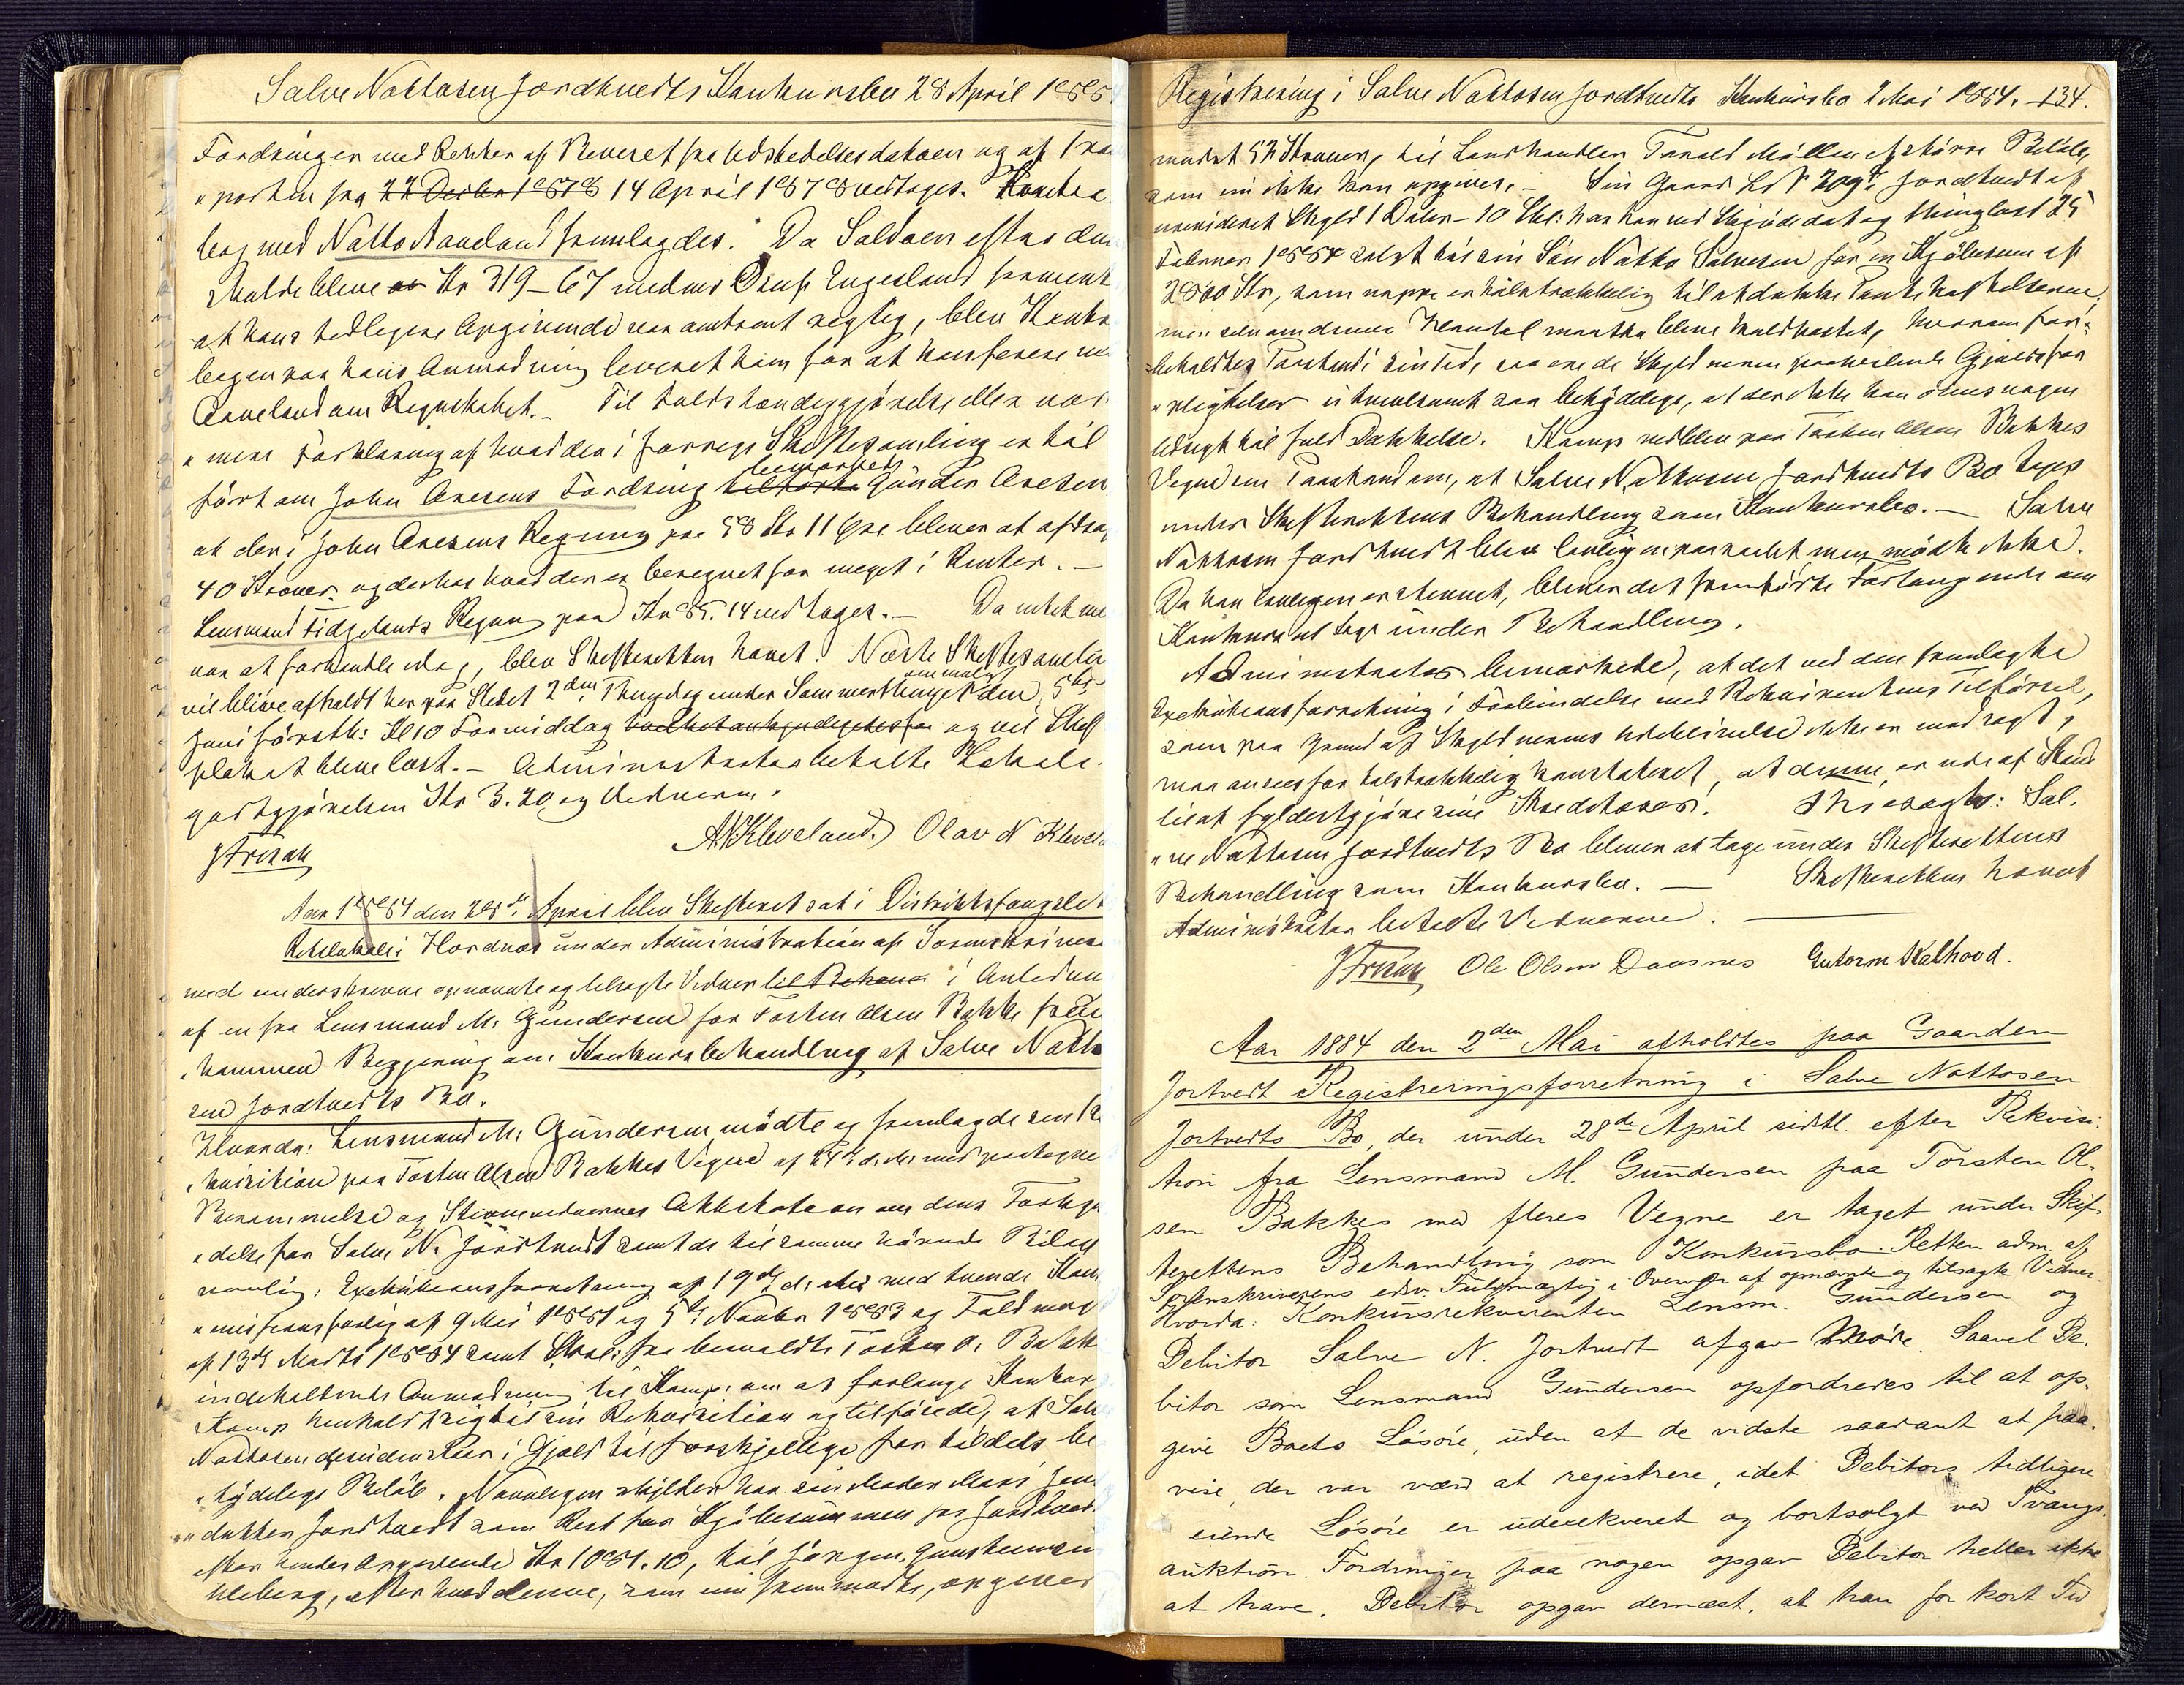 Salve Nattosen Jordtvedts Konkursbo 28 April 188
Fordringen med Renter af Beveret fra Udstedelsesdatoen og af Tra
porten fra 22 Decbr 1878 14 April 1878 vedtoges. Kontra
bog med Natto Aaneland fremlagdes. Da Saldoen efter den
skulde blive Kr 319-67 medens Oluf Engesland formente
at hans tidligere Opgivende var omtrent rigtig, blev Kontra
bogen paa hans Anmodning leveret ham for at konferere me
Aaneland om Regnskabet. - Til Fuldstændiggjørelse eller nær
mere Forklaring af hvad der i forrige Skiftesamling er til
ført om John Aresens Fordring bemærkes Gunder Aresen
at der i John Aresens Regning paa 58 Kr 11 Øre bliver at afdra
40 Kroner og derhos hvad der er beregnet for meget i Renter. -
Lensmand Fidjelands Regning paa Kr 85.14 vedtages. - Da intet me
var at forhandle idag, blev Skifteretten hævet. Næste Skiftesamlin
vil blive afholdt her paa Stedet 2den Thingdag under Sommerthinget om muligt den 5te
Juni førstk: Kl 10 Formiddag og vil Skif
plakat blive læst. - Administrator betalte Lokale
godtgjørelsen Kr 3.20 og Vidnerne.
A N Kleveland. Olav N Klevela
Aar 1884 den 28de April blev Skifteret sat i Distriktsfængslet
Retslokale i Hordnæs under Administration af Sorenskrivere
med underskrevne opnævnte og tilsagte Vidner til Behand i Anledn
af en fra Lensmand M. Gundersen for Torsten Olsen Bakke frem
kommen Begjæring om Konkursbehandling af Salve Natto
sen Jordtvedts Bo.
Hvorda: Lensmand M. Gundersen mødte og fremlagde sin Re
kvisition paa Torsten Olsen Bakkes Vegne af d. M. med paategne
Berammelse og Stevnevidnernes Attestation om dens Forkyn
delse for Salve N. Jordtvedt samt de til samme hørende Bilag
nemlig: Exekutionsforretning af 19de d. M. med tvende Kom
missionsforlig af 9 Mai 1881 og 5te Novbr 1883 og Fuldmag
af 13de Marts 1884 samt fra bemeldte Torsten O. Bakke
indeholdende Anmodning til Komp: om at forlange Konkurs
Komp henholdt sig til sin Rekvisition og tilføiede, at Salve
Nattosen desuden staar i Gjæld til forskjellige for tildels be
tydelige Beløb. Navnligen skylder han sin Moder Mari Jon
datter Jordtvedt som Rest paa Kjøbesummen for Jordtvedt
efter hendes Opgivende Kr 1081.10, til Jørgen Gunstensen
Uleberg, efter hvad denne, som nu fremmødte, opgiver
Registrering i Salve Nattosen Jordtvedts Konkursbo 2 Mai 1884. 134.
mindst 52 Kroner, til Landhandler Tarald Møllen et større Beløb,
som nu ikke kan opgives. - Sin Gaard L No 209 Jordtvedt af
urevideret Skyld 1 Daler - 10 Skl: har han ved Skjøde dat og thinglæst 25
Februar 1884 solgt til sin Søn Natto Salvesen for en Kjøbesum af
2800 Kr, som neppe er tilstrækkelig til at dække Pantehæftelserne,
men selv om denne Handel maatte blive kuldkastet, hvorom for-
beholdtes Paastand i sin Tid, saa ere de Skyldneren paahvilende Gjældsfor
pligtelser utvivlsomt saa betydelige, at der ikke kan sees nogen
Udsigt til fuld Dækkelse. Komp nedlagde paa Torsten Olsen Bakkes
Vegne sin Paastand om, at Salve Nattosen Jordtvedts Bo tages
under Skifterettens Behandling som Konkursbo. - Salve
Nattosen Jordtvedt blev lovligen paaraabt, men mødte ikke.
Da han lovligen er stevnet, bliver det fremførte Forlangende om
Konkurs at tage under Behandling.
Administrator bemærkede, at det ved den fremlagte
Exekutionsforretning i Forbindelse med Rekvirentens Tilførsel,
som paa Grund af Skyldnerens Udeblivelse ikke er modsagt,
maa ansees for tilstrækkelig konstateret, at denne er ude af Stand
til at fyldestgjøre sine Kreditorer. Thi eragtes: Sal.
ve Nattosen Jordtvedts Bo bliver at tage under Skifterettens
Behandling som Konkursbo. - Skifteretten hævet
Administrator betalte Vidnerne.
Ole Olsen Daasnes Gutorm Kalhovd.
Aar 1884 den 2den Mai afholdtes paa Gaarden
Jortvedt Registreringsforretning i Salve Nattosen
Jortvedts Bo, der under 28de April sidstl. efter Rekvisi-
tion fra Lensmand M. Gundersen paa Torsten Ol.
sen Bakkes med fleres Vegne er taget under Skif-
terettens Behandling som Konkursbo. Retten adm. af
Sorenskriverens edsv. Fuldmægtig i Overvær af opnævnte og tilsagte Vidner.
Hvorda: Konkursrekvirenten Lensm. Gundersen og
Debitor Salve N. Jortvedt afgav Møde. Saavel De.
bitor som Lensmand Gundersen opfordredes til at op.
give Boets Løsøre, uden at de vidste saadant at paa.
vise, der var værd at registrere, idet Debitors tidligere
eiende Løsøre er udexekveret og bortsolgt ved Tvangs.
auktion. Fordringer paa nogen opgav Debitor heller ikke
at have. Debitor opgav dernæst, at han for kort Tid